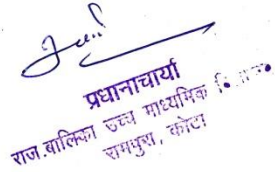 प्रधानाचार्या
राज.बालिका उच्च माध्यमिक
रामपुरा, कोटा